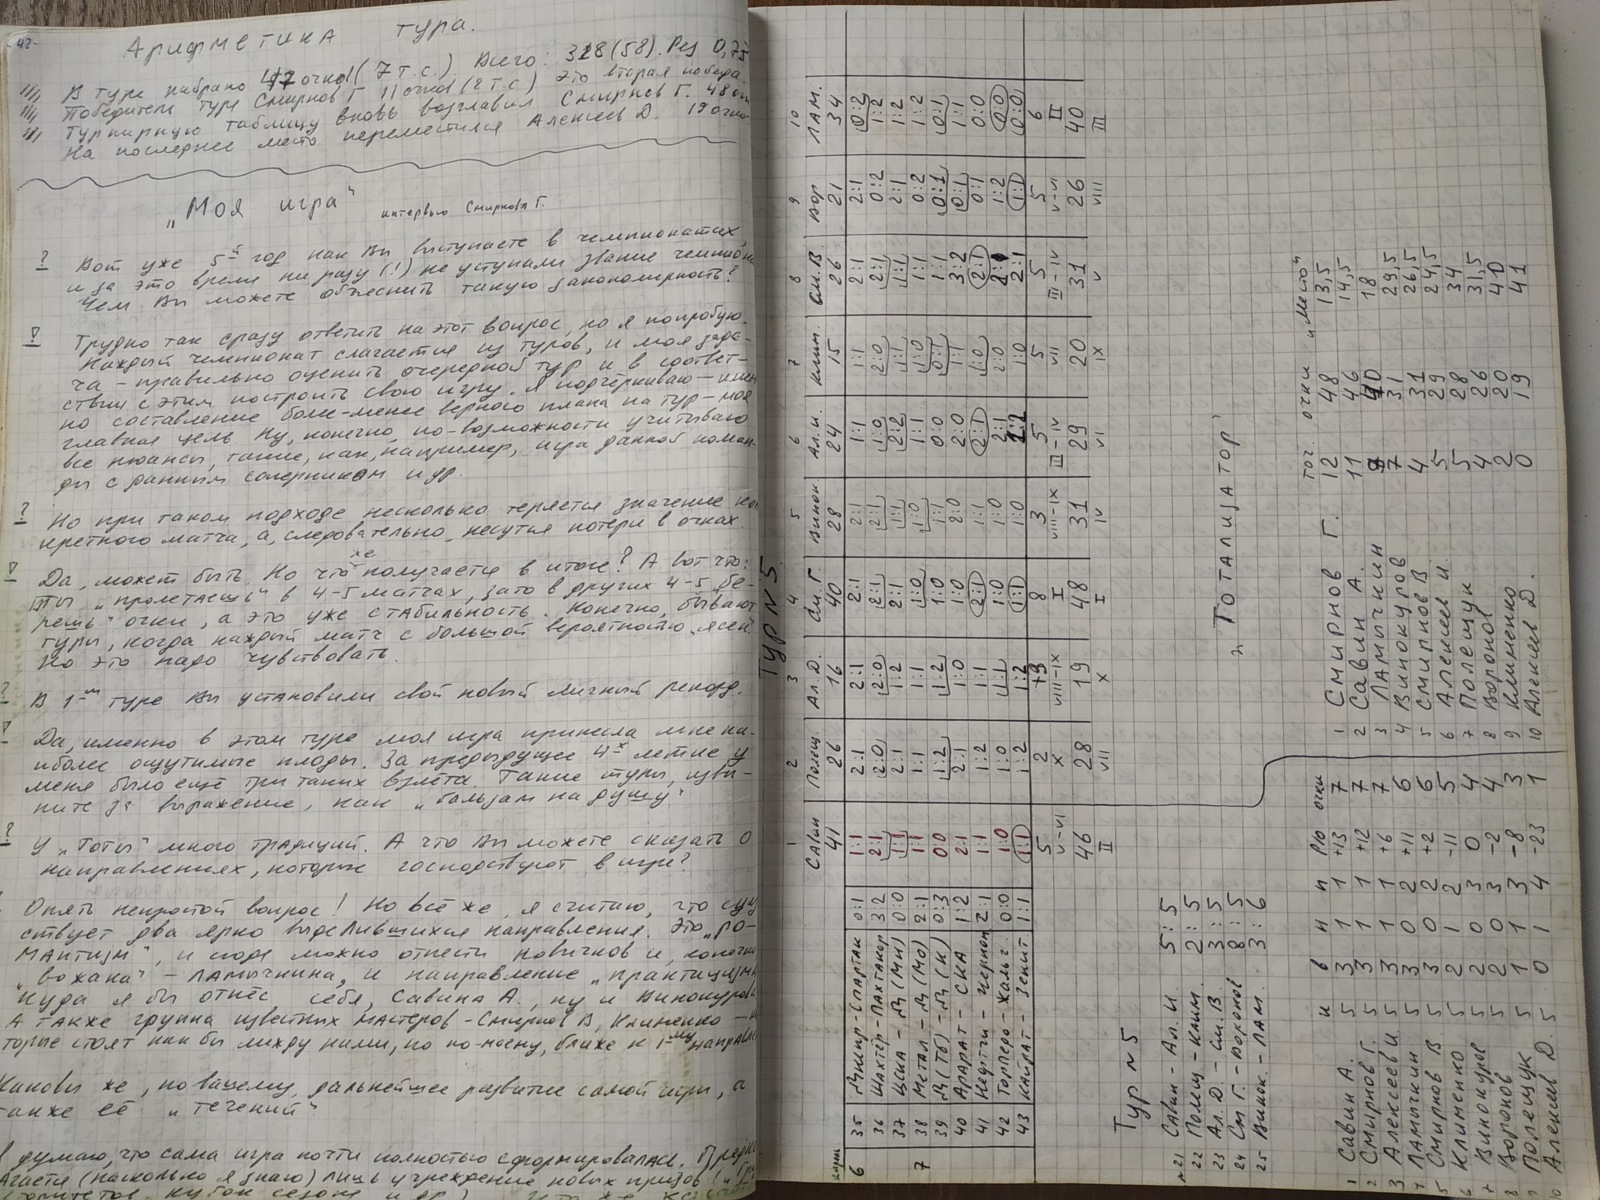 -42-
Арифметика тура.
В туре набрано 47 очков (7 т.с.) Всего: 328 (58). Рез 0,75
Победитель тура Смирнов Г 11 очков (2 т.с.) Это вторая победа.
Турнирную таблицу вновь возглавил Смирнов Г. 48 очк
На последнее место переместился Алексеев Д. 19 очко
„Моя игра" интервью Смирнова Г.
? Вот уже 5й год как Вы выступаете в чемпионатах,
и за это время ни разу (!) не уступали звание чемпиона
Чем Вы можете объяснить такую закономерность?
! Трудно так сразу ответить на этот вопрос, но я попробую.
Каждый чемпионат слагается из туров, и моя зада-
ча – правильно оценить очередной тур и в соответ-
ствии с этим построить свою игру. Я подчёркиваю – имен
но составление более-менее верного плана на тур – моя
главная цель. Ну, конечно, по-возможности учитываю
все нюансы, такие, как, например, игра данной коман-
ды с данным соперником и др.
? Но при таком подходе несколько теряется значение кон
кретного матча, а, следовательно, несутся потери в очках.
! Да, может быть. Но что же получается в итоге? А вот что:
ты „пролетаешь" в 4-5 матчах, зато в других 4-5 „бе-
решь" очки, а это уже стабильность. Конечно, бывают
туры, когда каждый матч с большой вероятностью „ясен".
Но это надо чувствовать.
? В 1-м туре Вы установили свой новый личный рекорд.
! Да, именно в этом туре моя игра принесла мне на-
иболее ощутимые плоды. За предыдущее 4х летие у
меня было ещё три таких взлёта. Такие туры, изви-
ните за выражение, как „бальзам на душу"
? У „Тоты" много традиций. А что Вы можете сказать о
направлениях, которые господствуют в игре?
Опять непростой вопрос! Но всё же, я считаю, что суще
ствует два ярко выделившихся направления. Это „ро-
мантизм", и сюда можно отнести новичков и, конечно,
„вожака" – Ламычкина, и направление „практицизма
куда я бы отнёс себя, Савина А., ну и Винокурова
А также группа известных мастеров – Смирнов В, Клименко – ко
торые стоят как бы между ними, но по-моему, ближе к 1-му направле
Каковы же, по вашему, дальнейшее развитие самой игры, а
также её „течений"
Я думаю, что сама игра почти полностью сформировалась. Предпо
лагается (насколько я знаю) лишь учреждение новых призов
Тур N 5
1 2 3 4 5 6 7 8 9 10
Савин Полещ Ал. Д. См. Г. Винок Ал. И. Клим См. В. Вор ЛАМ.
41 26 16 40 28 24 15 26 21 34
6 35 Днепр-Спартак 0:1 1:1 2:1 2:1 2:1 2:1 1:1 1:1 2:1 2:1 0:2
36 Шахтёр-Пахтакор 3:2 2:1 2:0 2:0 2:1 2:1 1:0 2:0 2:1 0:2 1:2
37 ЦСКА - Д (Мн) 0:0 1:1 2:1 1:2 2:1 1:1 2:2 1:1 1:1 2:1 1:2
7 38 Метал - Д (Мо) 2:1 1:1 1:1 1:1 1:0 1:0 1:1 1:0 1:1 0:2 1:2
39 Д (Тб) - Д (К) 0:3 0:0 1:2 1:2 1:0 1:1 0:0 0:1 1:1 0:1 0:1
40 Арарат - СКА 1:2 2:1 2:1 1:0 1:0 2:0 2:0 1:1 3:2 0:1 1:1
41 Нефтчи - Черном 2:1 1:1 1:2 1:1 2:1 1:1 2:1 1:0 2:1 0:1 0:0
42 Торпедо - Жальг. 0:0 1:0 1:0 1:1 1:0 1:0 2:1 2:0 2:1 1:2 0:0
43 Кайрат - Зенит 1:1 1:1 1:2 1:2 1:1 1:0 1:2 1:0 2:1 1:1 0:0
5 2 +3 8 3 5 5 5 5 6
V-VI X VIII-IX I VIII-IX III-IV VII III-IV V-VI II
46 28 19 48 31 29 20 31 26 40
II VII X I IV VI IX V VIII III
Тур N 5
21 Савин - Ал. И 5 : 5
22 Полещ - Клим 2 : 5
23 Ал. Д. - См. В 3 : 5
24 См Г. - Воронов 8 : 5
25 Винок. - ЛАМ. 3 : 6
и в н п р/ю очки
1 Савин А. 5 3 1 1 +13 7
2 Смирнов Г. 5 3 1 1 +12 7
3 Алексеев И 5 3 1 1 +6 7
4 Ламычкин 5 3 0 2 +11 6
5 Смирнов В 5 3 0 2 +2 6
6 Клименко 5 2 1 2 -11 5
7 Винокуров 5 2 0 3 0 4
8 Воронов 5 2 0 3 -2 4
Полещук 5 1 1 3 -8 3
Алексеев Д. 5 0 1 4 -23 1
„Тотализатор"
тот. очки „место"
1 Смирнов Г. 12 48 13,5
2 Савин А. 11 46 14,5
3 Ламычкин 9 40 18
4 Винокуров 7 31 29,5
5 Смирнов В 4 31 26,5
6 Алексеев И. 5 29 24,5
7 Полещук 5 28 34
8 Воронов 4 26 31,5
9 Клименко 2 20 40
10 Алексеев Д. 0 19 41